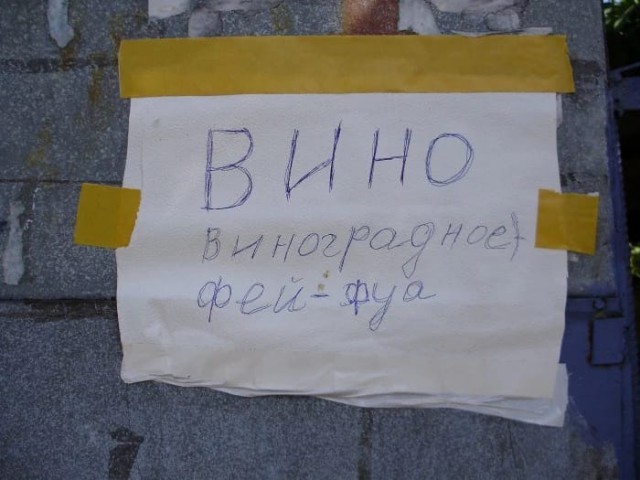 ВИНО
виноградное,
фей-фуа